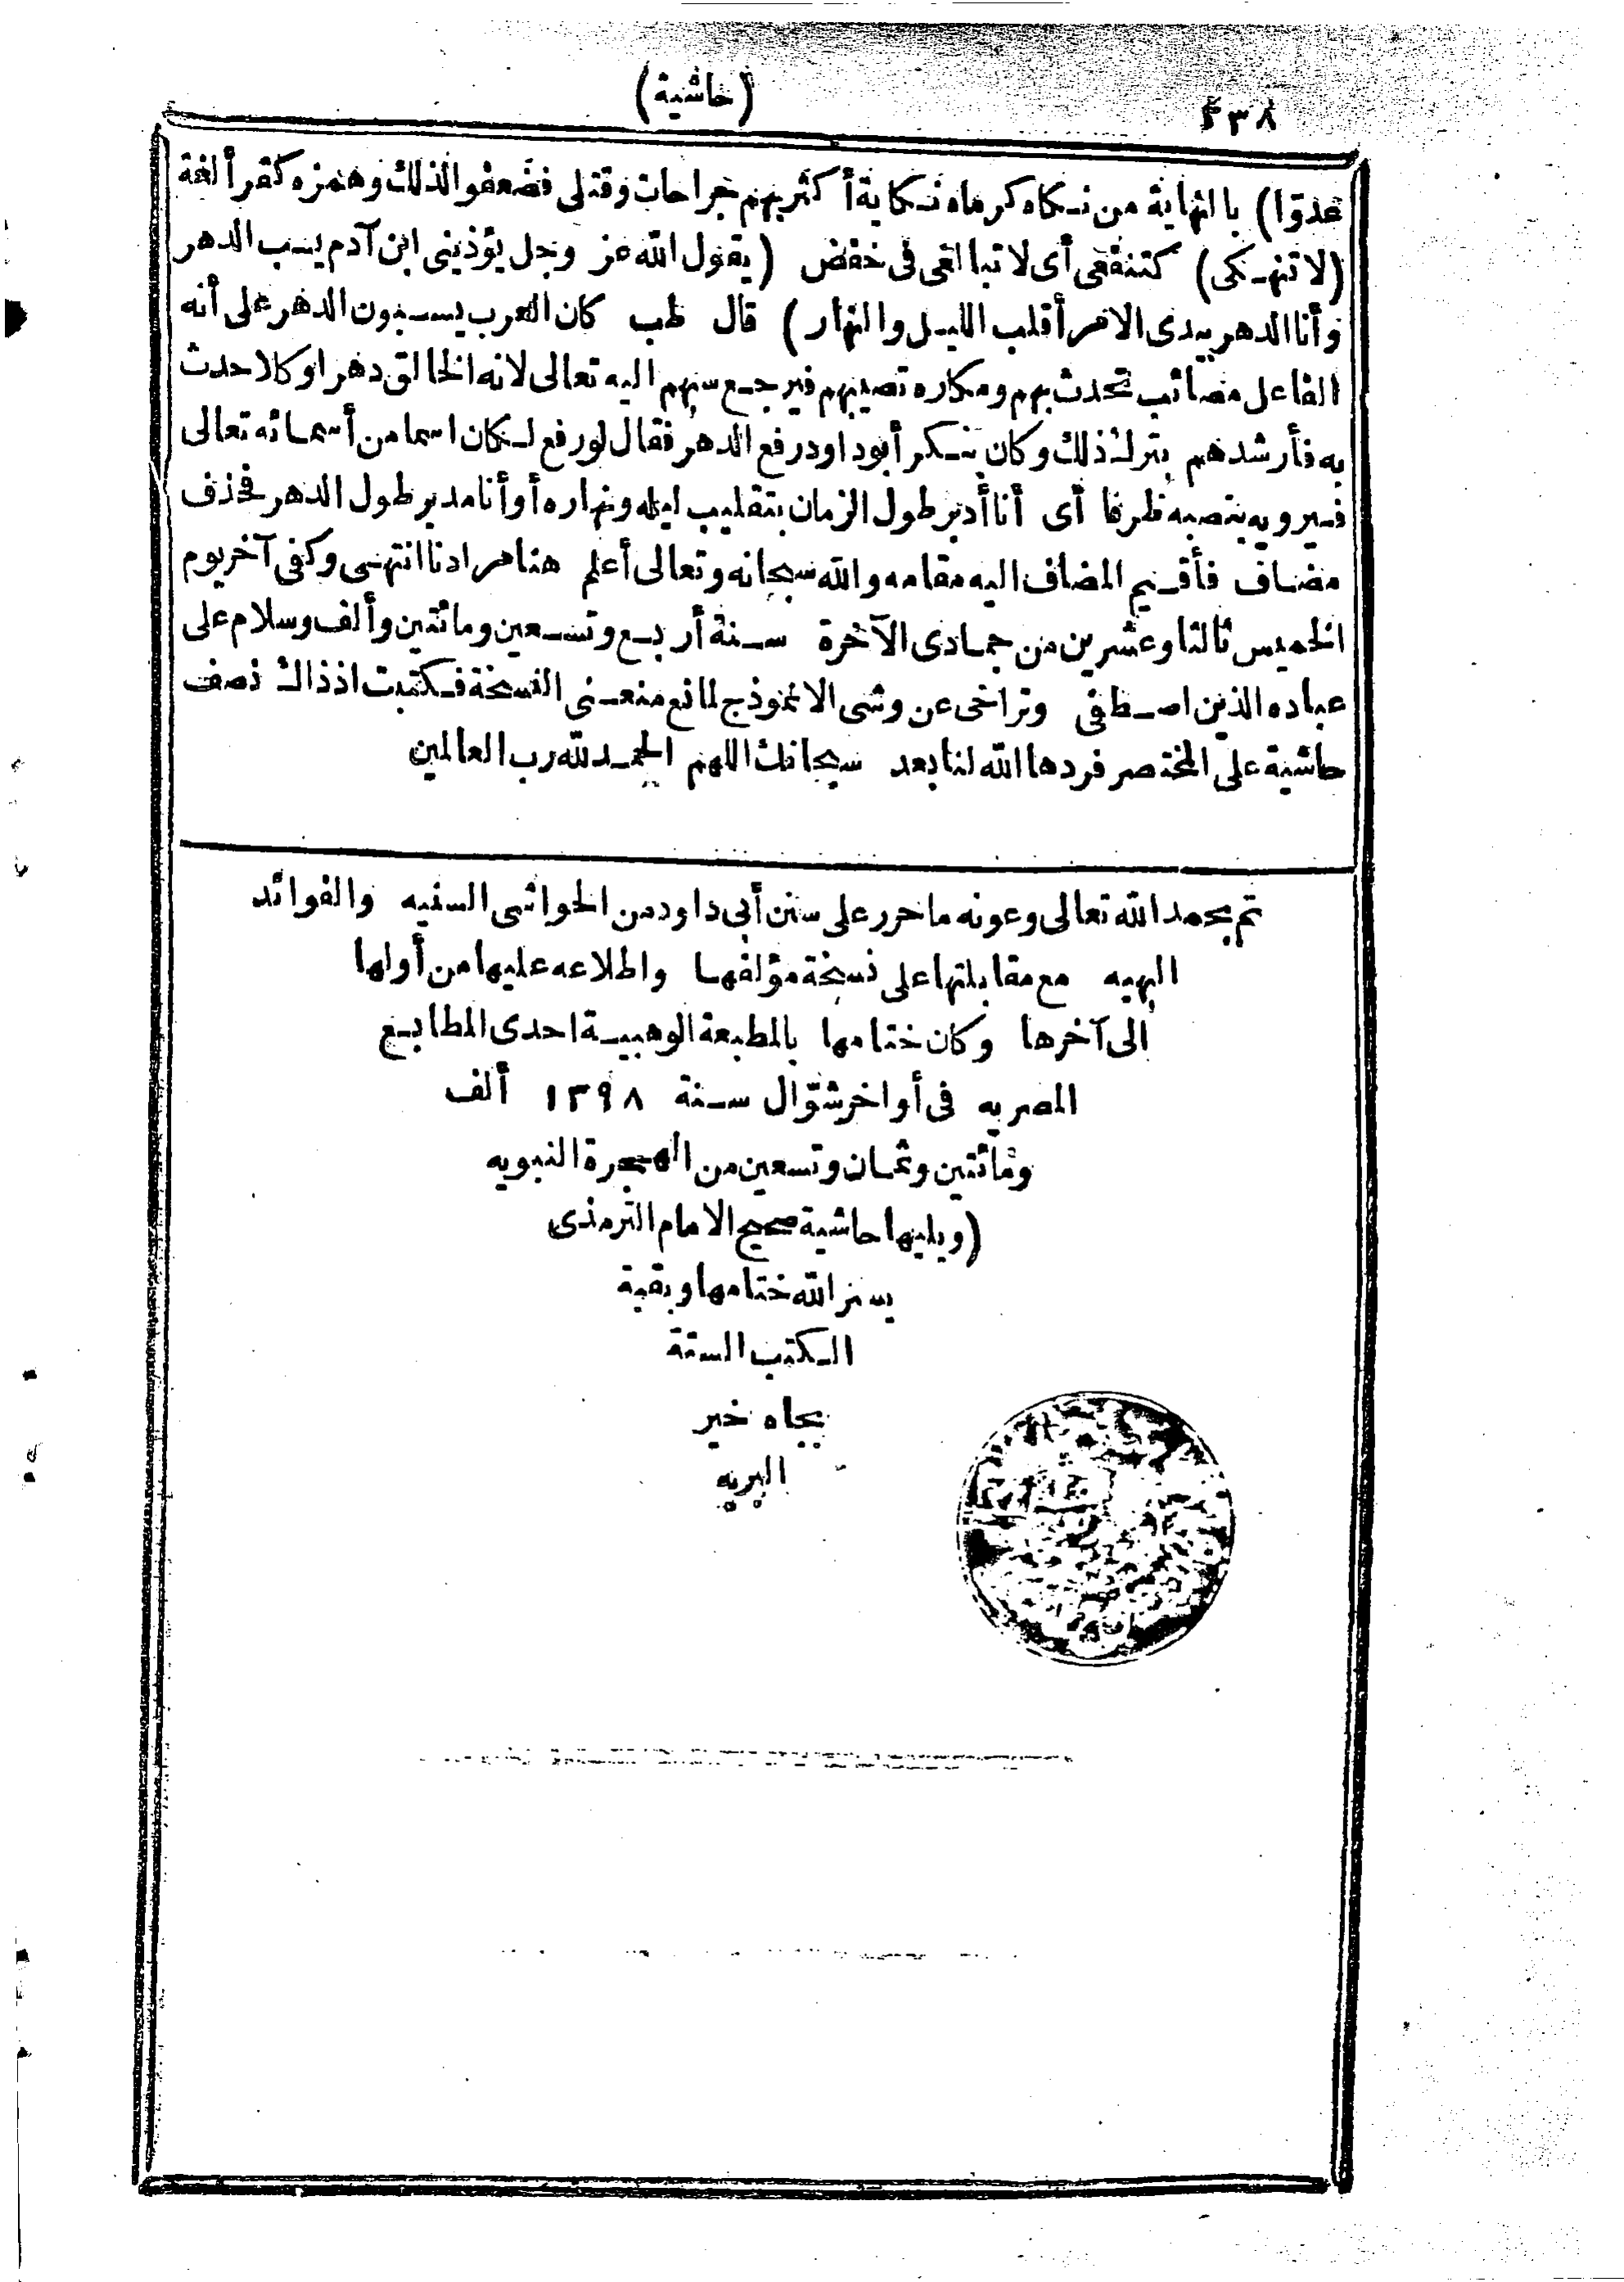 (حاشية)
٢٣٨
عدوّا) بالنهاية من نكاه كرماه نكاية أكثر بهم جراحات وقتلى فضعفوا لذلك وهمزه كقرأ لغة
(لا تنهكى) كتنفعى أى لا تبالغى فى خفض (يقول الله عز وجل يؤذينى ابن آدم يسب الدهر
وأنا الدهر بيدى الامر أقلب الليل والنهار) قال طب كان العرب يسبون الدهر على أنه
الفاعل مصائب تحدث بهم ومكاره تصيبهم فيرجع سبهم اليه تعالى لانه الخالق دهرا وكلا حدث
به فأرشدهم بترك ذلك وكان ينكر أبو داود رفع الدهر فقال لو رفع لكان اسما من أسمائه تعالى
فيرويه بنصبه ظرفا أى أنا أدبر طول الزمان بتقليب ليله ونهاره أو أنا مدبر طول الدهر فحذف
مضاف فأقيم المضاف اليه مقامه والله سبحانه وتعالى أعلم هنا مرادنا انتهى وكفى آخر يوم
الخميس ثالثا وعشرين من جمادى الآخرة سنة أربع وتسعين ومائتين وألف وسلام على
عباده الذين اصطفى وتراخى عن وشى الانموذج لمانع منعنى النسخة فكتبت اذ ذاك نصف
حاشية على المختصر فردها الله لنا بعد سبحانك اللهم الحمد لله رب العالمين
تم بحمد الله تعالى وعونه ما حرر على سنن أبى داود من الحواشى السنيه والفوائد
البهيه مع مقابلتها على نسخة مؤلفها واطلاعه عليها من أولها
الى آخرها وكان ختامها بالمطبعة الوهبية احدى المطابع
المصريه فى أواخر شوّال سنة ١٢٩٨ ألف
ومائتين وثمان وتسعين من الهجرة النبويه
(ويليها حاشية صحيح الامام الترمذى
يسر الله ختامها وبقية
الكتب الستة
بجاه خير
البريه